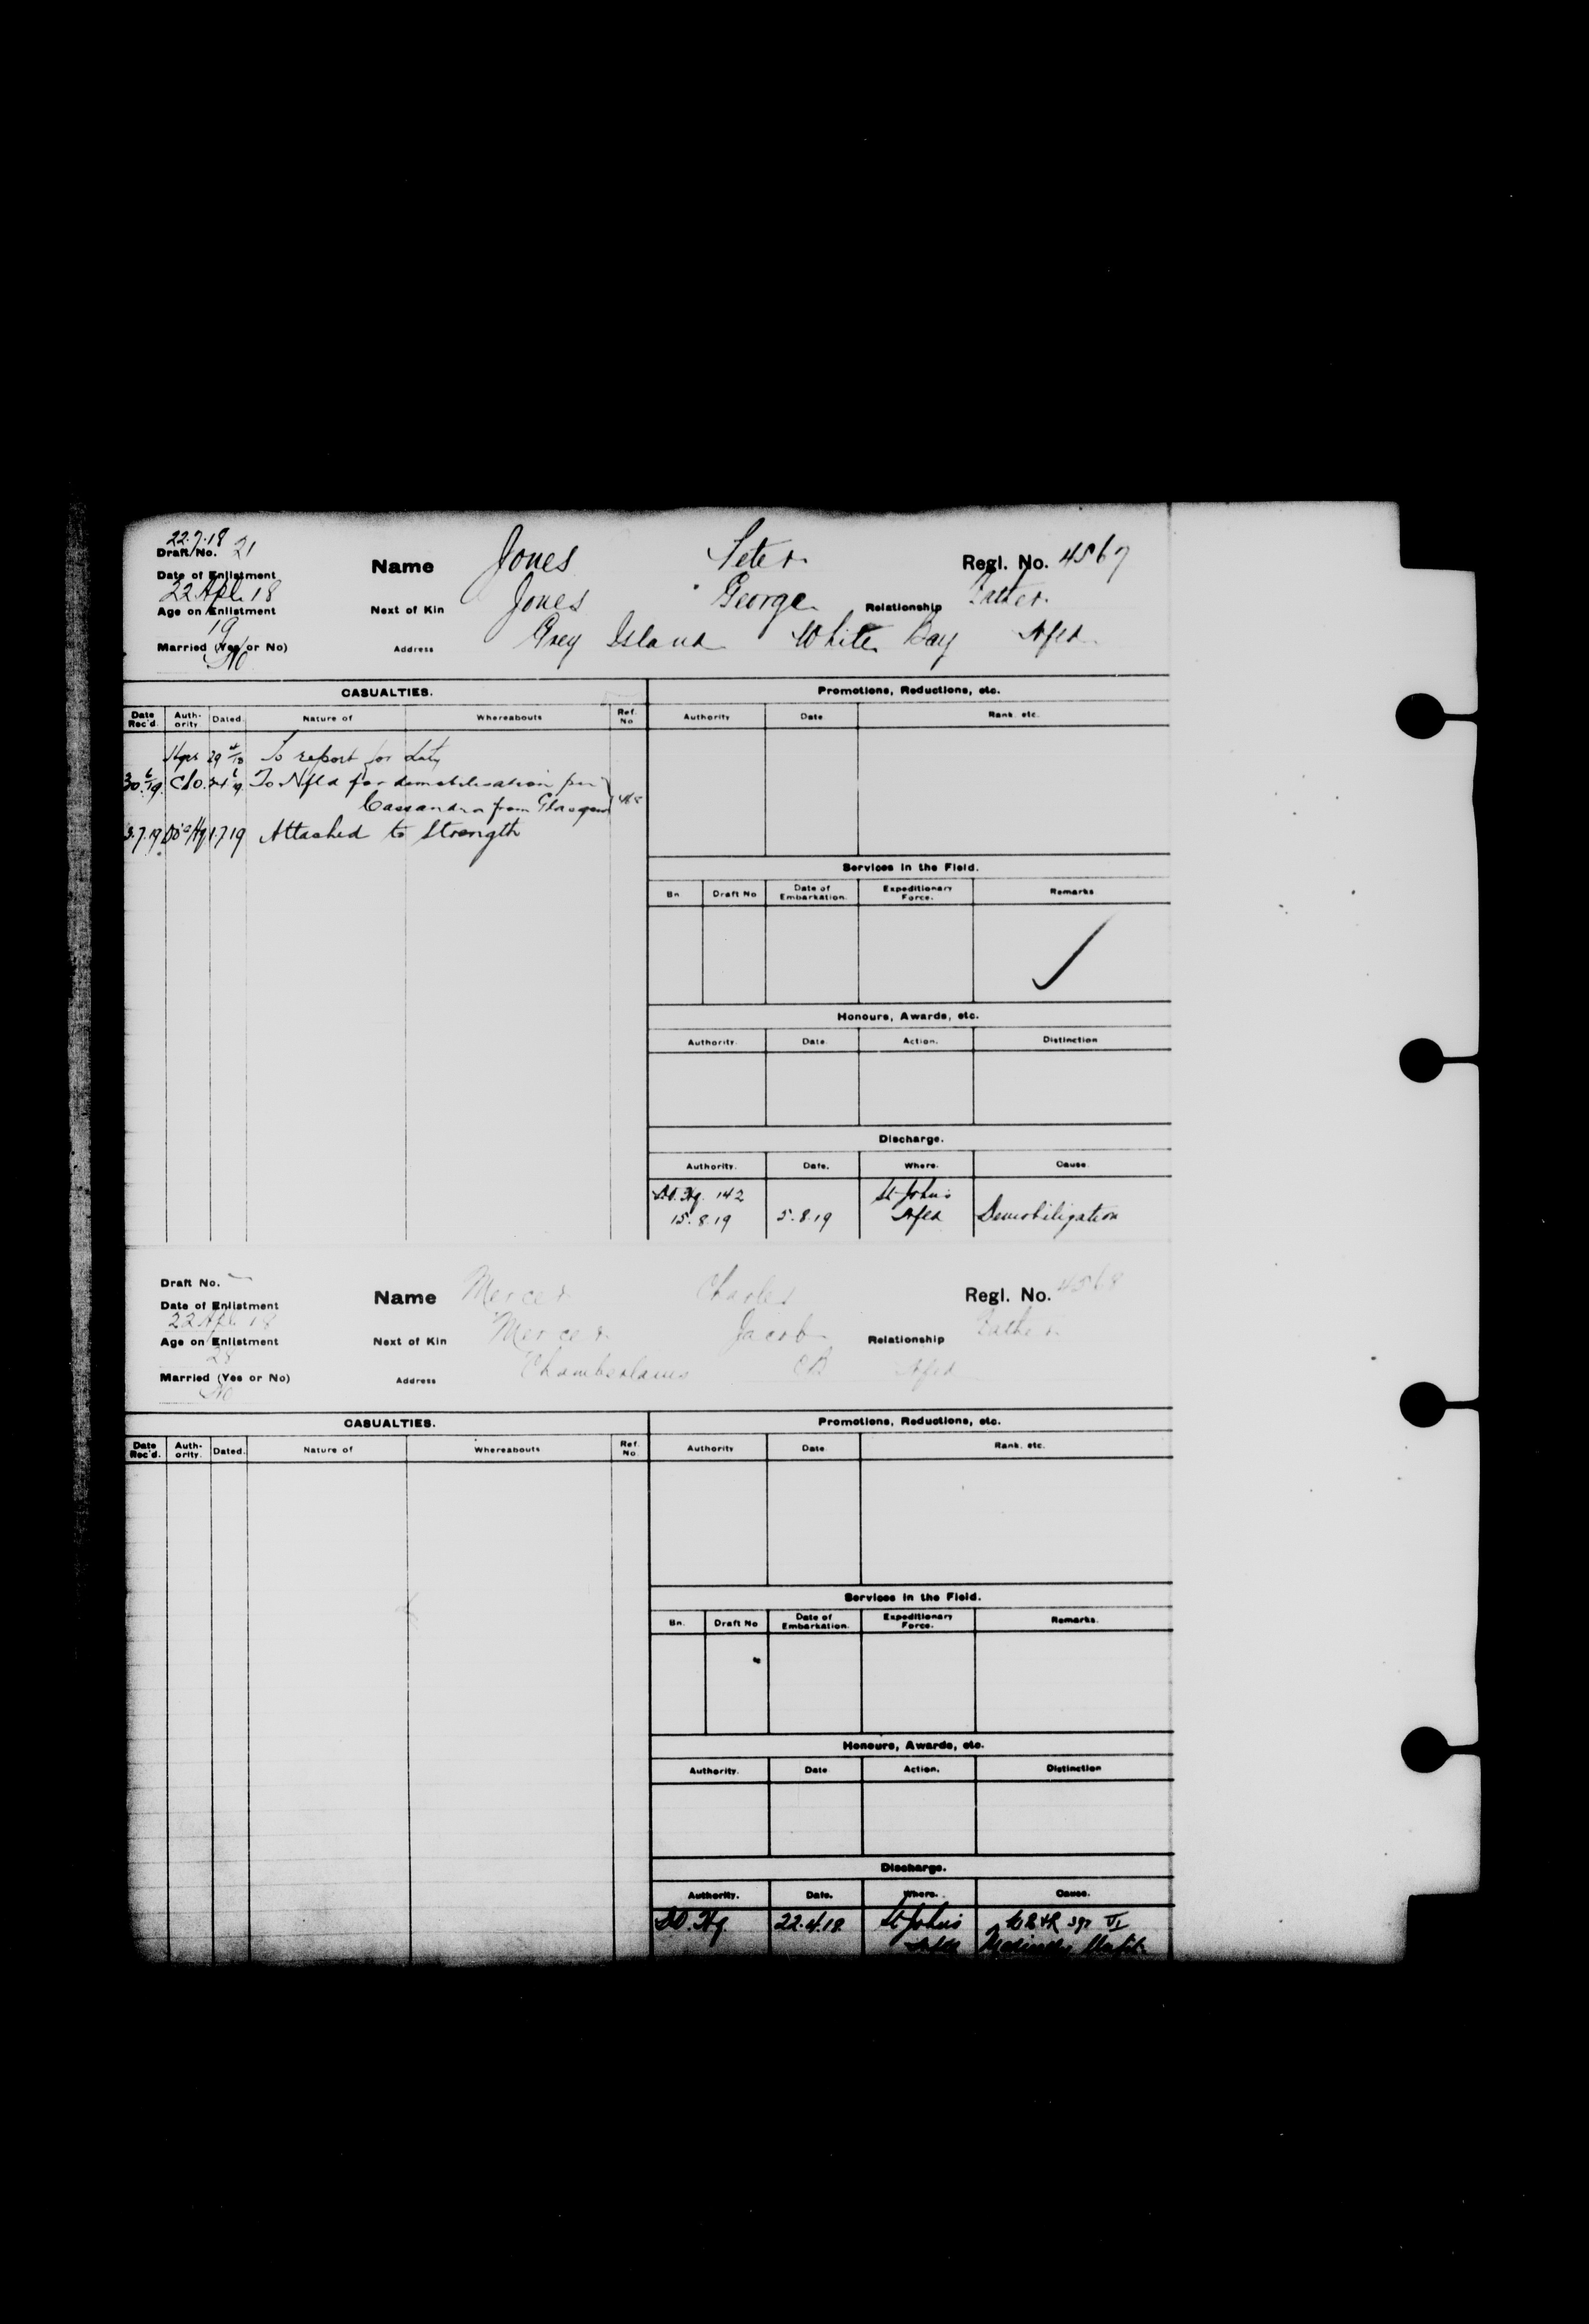 22.7.18
Draft No. 21
Name Jones Peter Regl. No. 4567
Date of Enlistment
22 Apl. 18
Next of Kin Jones George Relationship Father
Age on Enlistment
19
Address Grey Island White Bay Nfld
Married (Yes or No)
No
CASUALTIES.
Date Rec'd. Authority Dated. Nature of Whereabouts Ref. No
29 4/18 To report for duty
30 6/19 C/O. 24 6/19 To Nfld for demobilisation per
Cassandra from Glasgow
3.7.19 1.7.19 Attached to Strength
Promotions, Reductions, etc.
Authority Date Rank, etc.
Services in the Field.
Bn Draft No Date of Embarkation. Expeditionary Force. Remarks
Honours, Awards, etc.
Authority. Date. Action. Distinction
Discharge.
Authority. Date. Where. Cause.
Hq. 142 St. John's
15.8.19 5.8.19 Nfld Demobilization
Draft No.
Name Mercer Charles Regl. No. 4568
Date of Enlistment
22 Apl. 18
Next of Kin Mercer Jacob Relationship Father
Age on Enlistment
28
Address Chamberlains CB Nfld
Married (Yes or No)
No
CASUALTIES.
Date Rec'd. Authority. Dated. Nature of Whereabouts Ref. No.
Promotions, Reductions, etc.
Authority Date Rank, etc.
Services in the Field.
Bn. Draft No Date of Embarkation. Expeditionary Force. Remarks.
Honours, Awards, etc.
Authority. Date Action. Distinction
Discharge.
Authority. Date. Where. Cause.
Hq. 22.4.18 St. John's
Nfld Medically Unfit